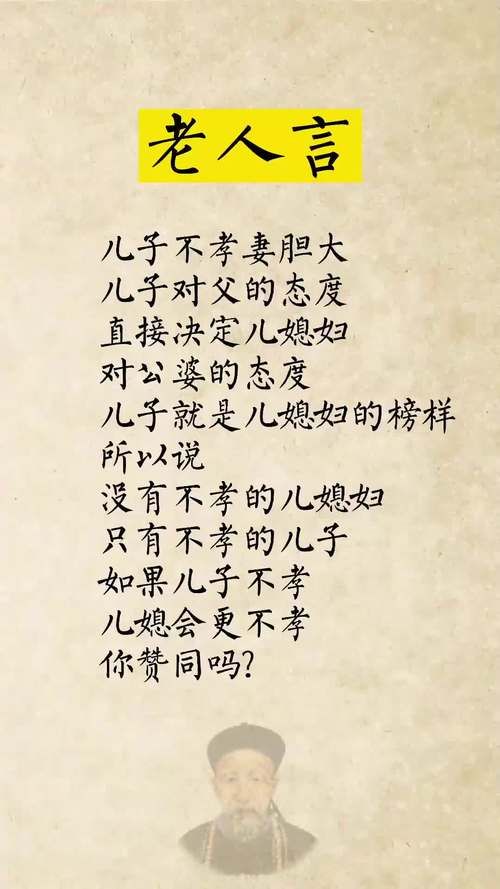 老人言
儿子不孝妻胆大
儿子对父的态度
直接决定儿媳妇
对公婆的态度
儿子就是儿媳妇的榜样
所以说
没有不孝的儿媳妇
只有不孝的儿子
如果儿子不孝
儿媳会更不孝
你赞同吗?